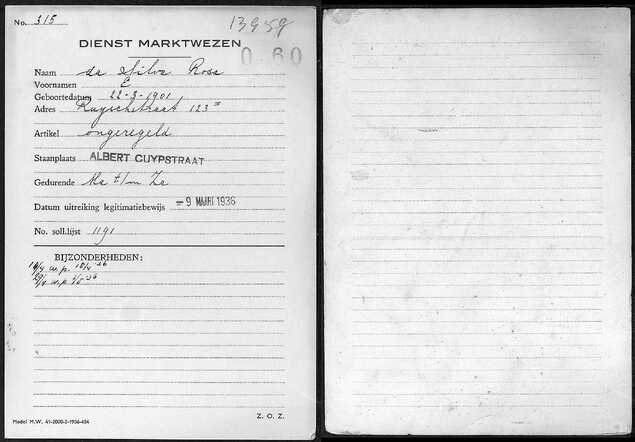 No. 315
13959
DIENST MARKTWEZEN
0.60
Naam da Silva Rosa
Voornamen E
Geboortedatum 22-3-1901
Adres Ruyschstraat 123 III
Artikel ongeregeld
Staanplaats ALBERT CUYPSTRAAT
Gedurende Ma t/m Za
Datum uitreiking legitimatiebewijs -9 MAART 1936
No. soll.lijst 1191
BIJZONDERHEDEN:
w.p.
w.p.
Model M.W. 41-2000-2-1936-404
Z. O. Z.